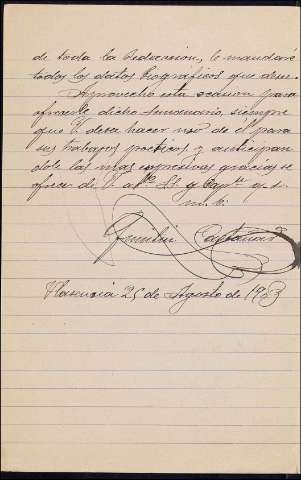 de toda la Redaccion, le mandaré
todos los datos biográficos que desee.
Aprovecho esta ocasion para
ofrecerle dicho semanario, siempre
que V. desee hacer uso de el para
sus trabajos poeticos y anticipan
dole las mas expresivas gracias se
ofrece de V. af.º S. S. y Cap.n q. s.
m. b.
Emilio
Plasencia 25 de Agosto de 1903